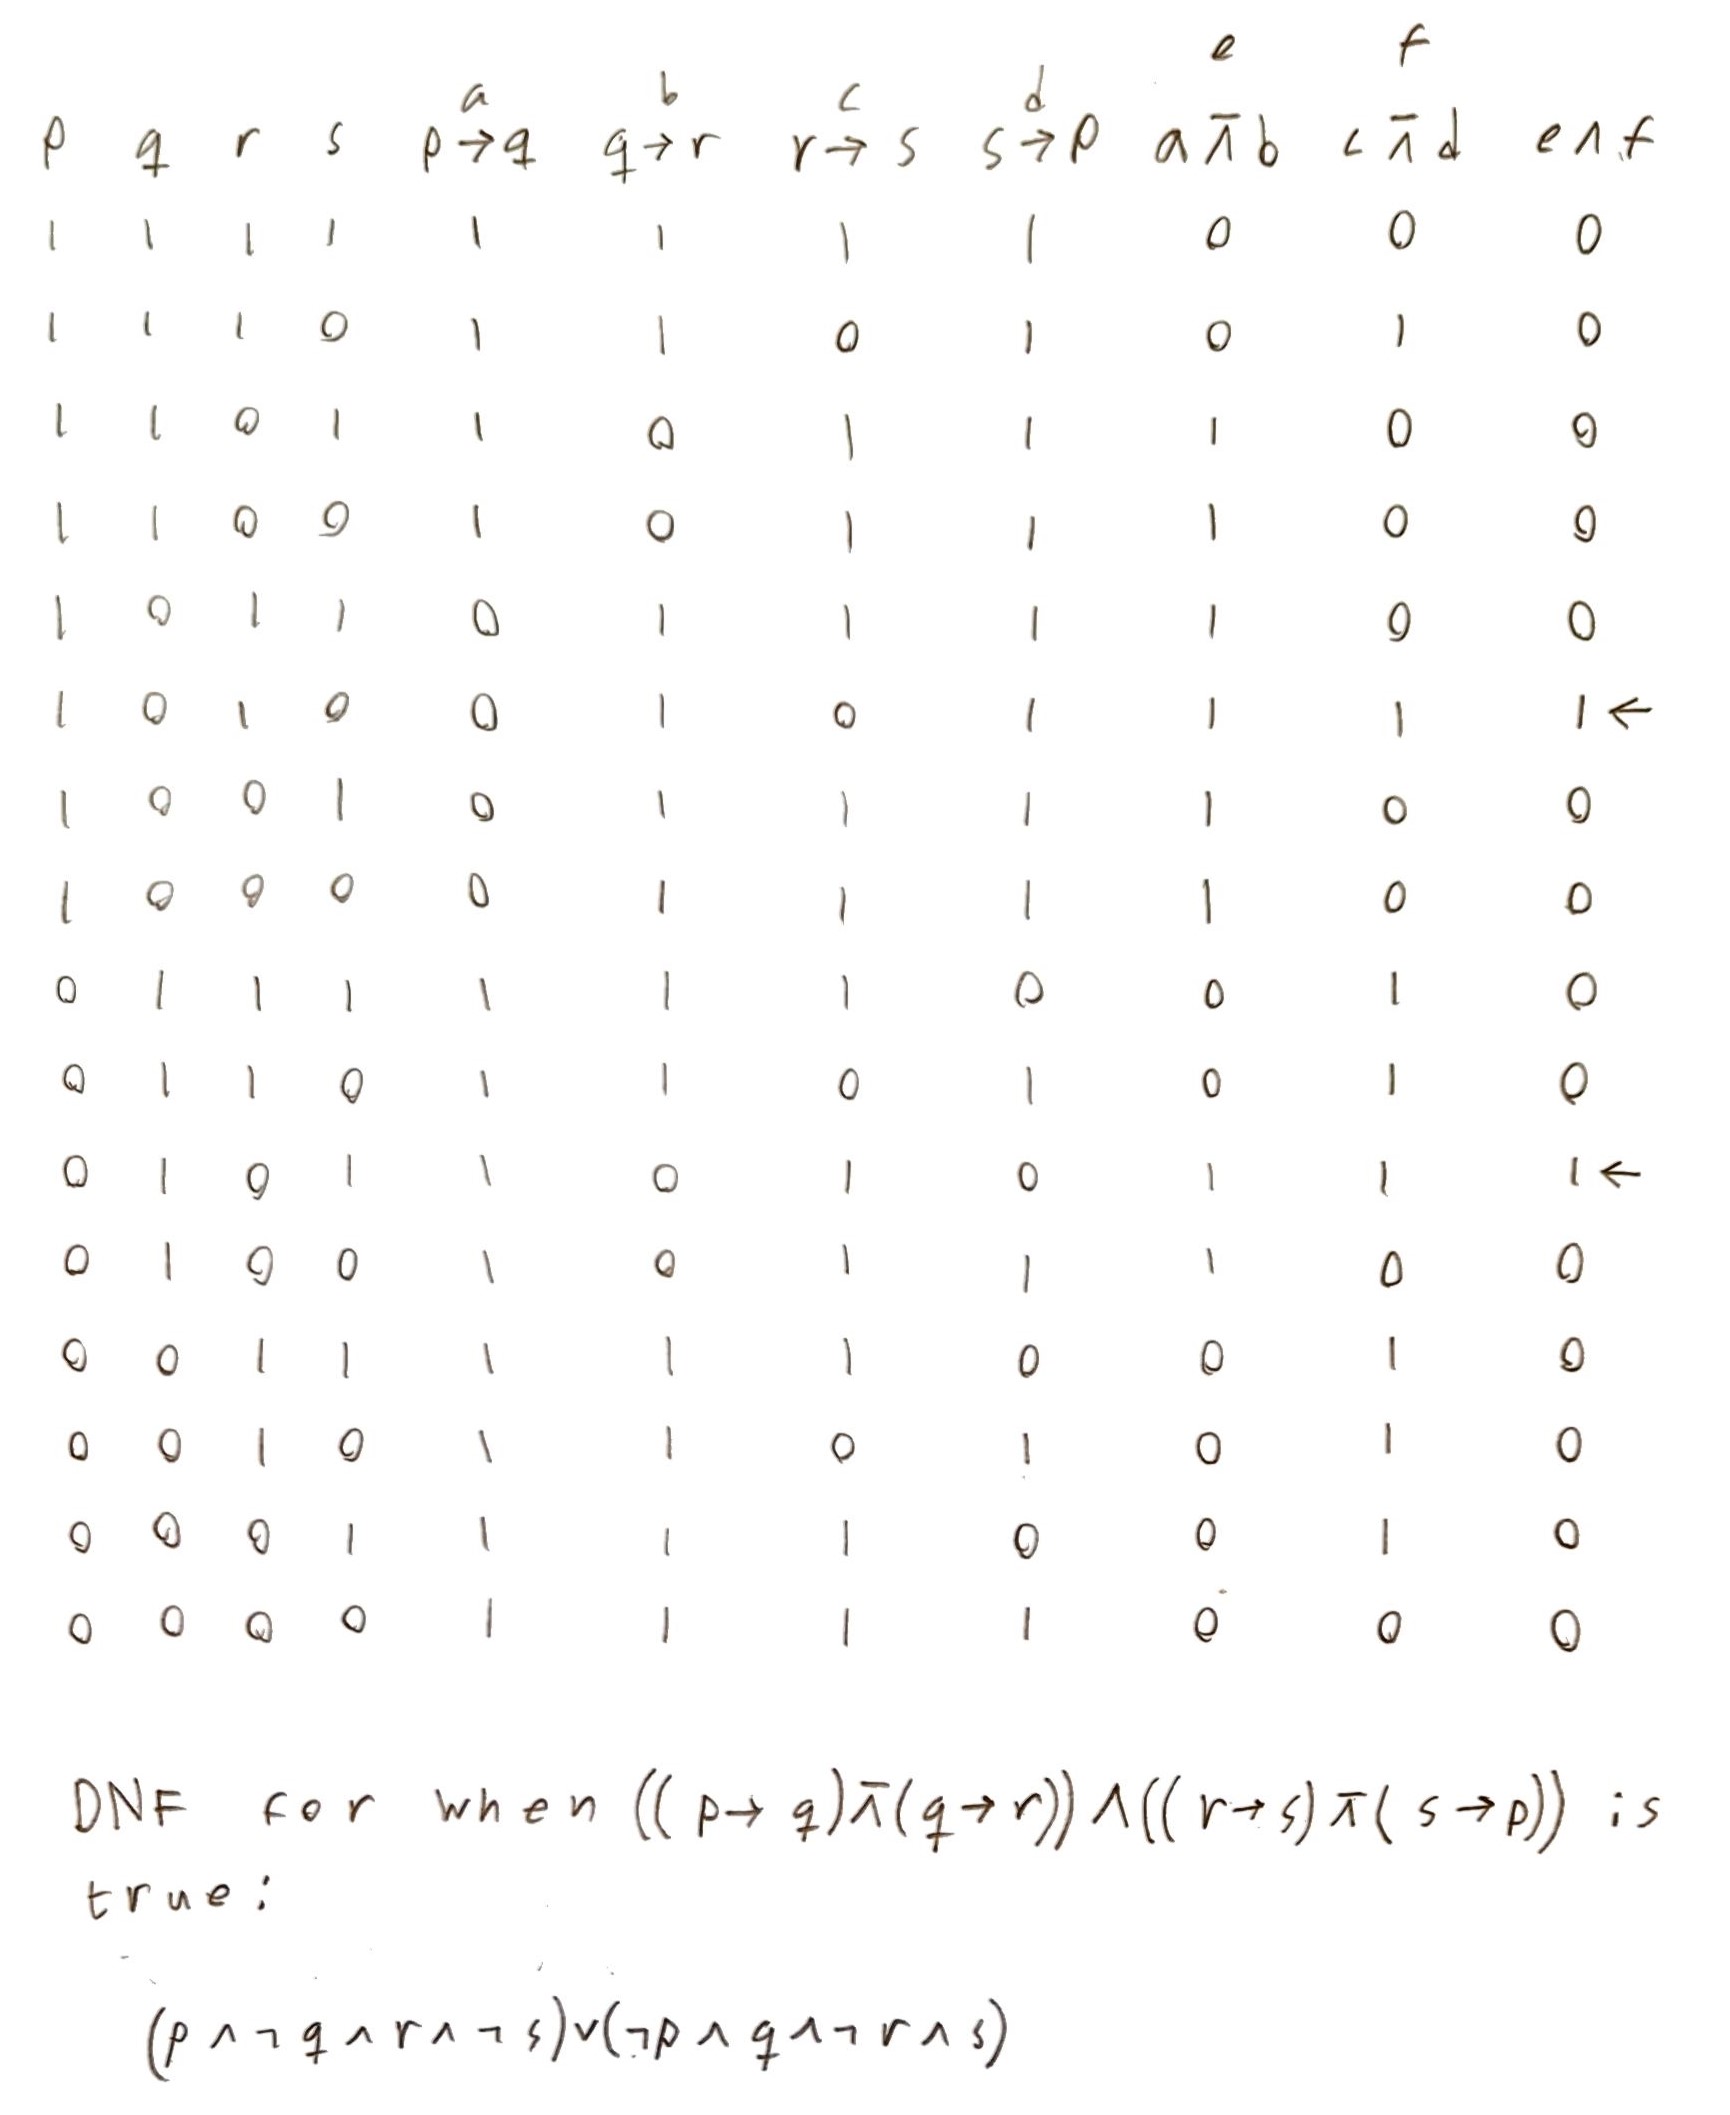 e f
a b c d
p q r s p→q q→r r→s s→p a⊼b c⊼d e∧f
1 1 1 1 1 1 1 1 0 0 0
1 1 1 0 1 1 0 1 0 1 0
1 1 0 1 1 0 1 1 1 0 0
1 1 0 0 1 0 1 1 1 0 0
1 0 1 1 0 1 1 1 1 0 0
1 0 1 0 0 1 0 1 1 1 1 ←
1 0 0 1 0 1 1 1 1 0 0
1 0 0 0 0 1 1 1 1 0 0
0 1 1 1 1 1 1 0 0 1 0
0 1 1 0 1 1 0 1 0 1 0
0 1 0 1 1 0 1 0 1 1 1 ←
0 1 0 0 1 0 1 1 1 0 0
0 0 1 1 1 1 1 0 0 1 0
0 0 1 0 1 1 0 1 0 1 0
0 0 0 1 1 1 1 0 0 1 0
0 0 0 0 1 1 1 1 0 0 0
DNF for when ((p→q)⊼(q→r))∧((r→s)⊼(s→p)) is
true:
(p∧¬q∧r∧¬s)∨(¬p∧q∧¬r∧s)